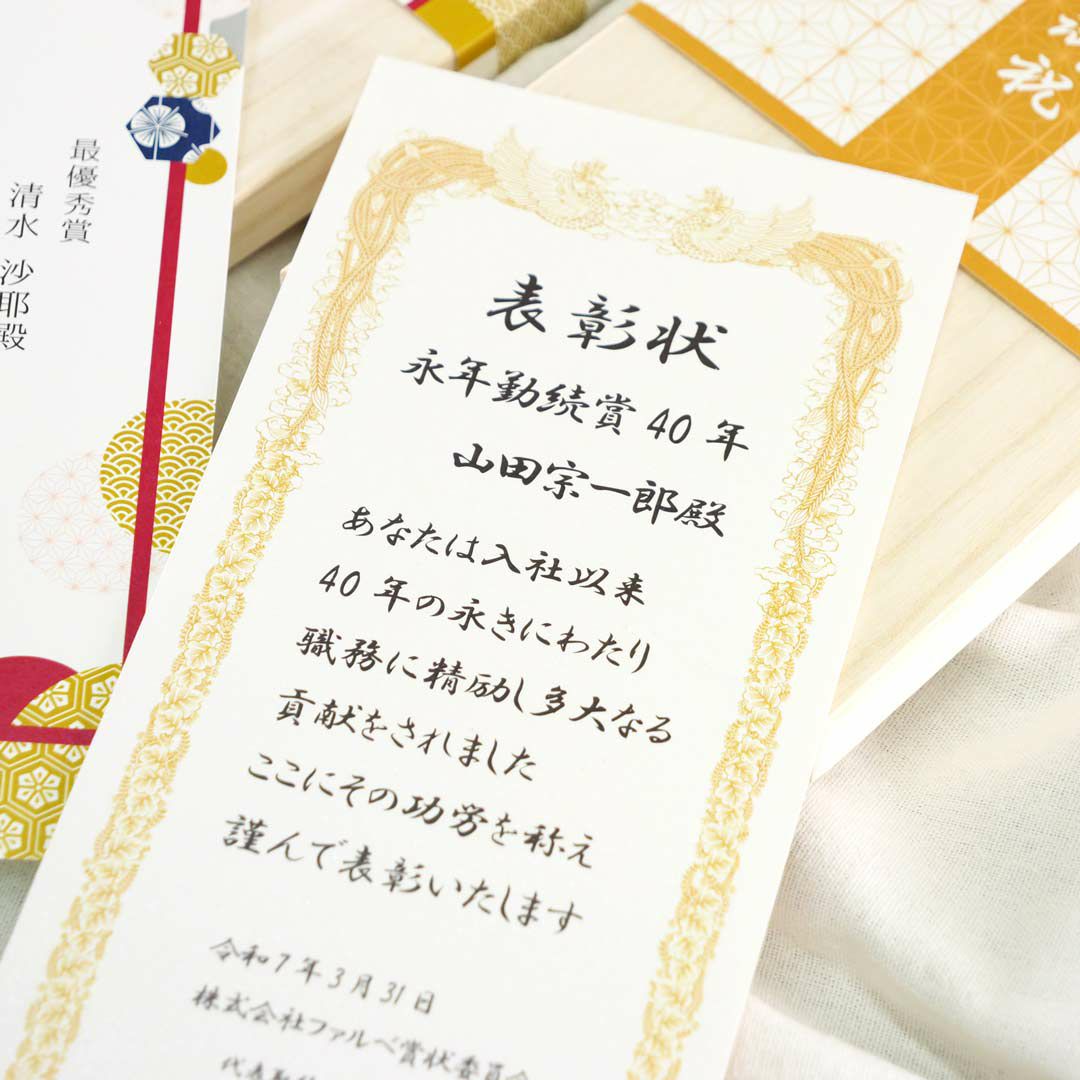 表彰状
永年勤続賞 40 年
山田宗一郎殿
あなたは入社以来
40 年の永きにわたり
職務に精励し多大なる
貢献をされました
ここにその功労を称え
謹んで表彰いたします
令和7年3月31日
株式会社ファルベ賞状委員会
最優秀賞
清水 沙耶殿
祝